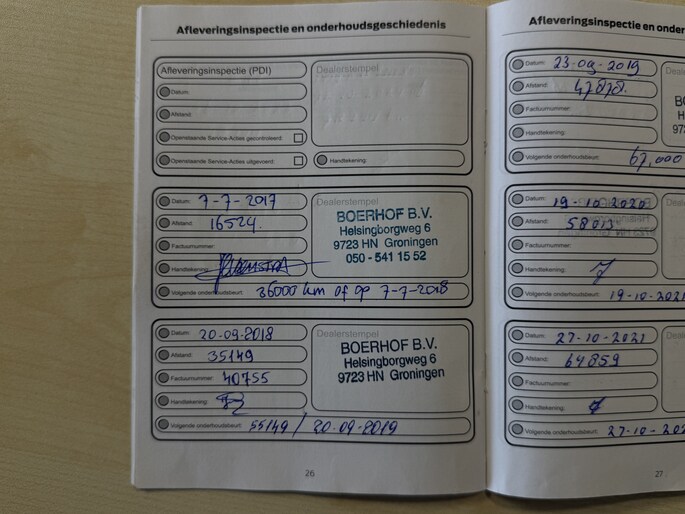 Afleveringsinspectie en onderhoudsgeschiedenis
Afleveringsinspectie (PDI)
Dealerstempel
Datum:
Afstand:
Openstaande Service-Acties gecontroleerd:
Openstaande Service-Acties uitgevoerd:
Handtekening:
Datum: 7-7-2017
Dealerstempel
Afstand: 16524
Factuurnummer:
Handtekening:
BOERHOF B.V.
Helsingborgweg 6
9723 HN Groningen
050 - 541 15 52
Volgende onderhoudsbeurt: 36000 km of op 7-7-2018
Datum: 20-09-2018
Dealerstempel
Afstand: 35149
Factuurnummer: 40755
Handtekening:
BOERHOF B.V.
Helsingborgweg 6
9723 HN Groningen
Volgende onderhoudsbeurt: 55149 / 20-09-2019
26
Afleveringsinspectie en onder
Datum: 23-09-2019
Afstand: 47878.
Factuurnummer:
Handtekening:
Volgende onderhoudsbeurt: 67,000
Datum: 19-10-2020
Afstand: 58013
Factuurnummer:
Handtekening:
Volgende onderhoudsbeurt: 19-10-2021
Datum: 27-10-2021
Afstand: 64859
Factuurnummer:
Handtekening:
Volgende onderhoudsbeurt: 27-10-202
27